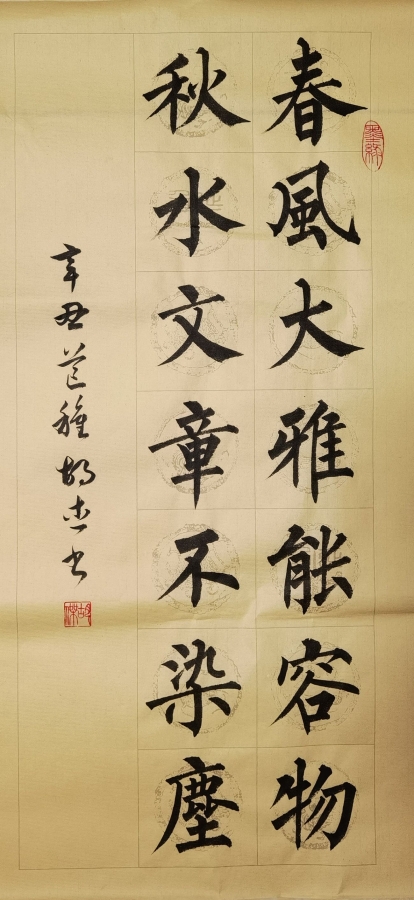 春風大雅能容物
秋水文章不染塵
辛丑芒種胡杰书